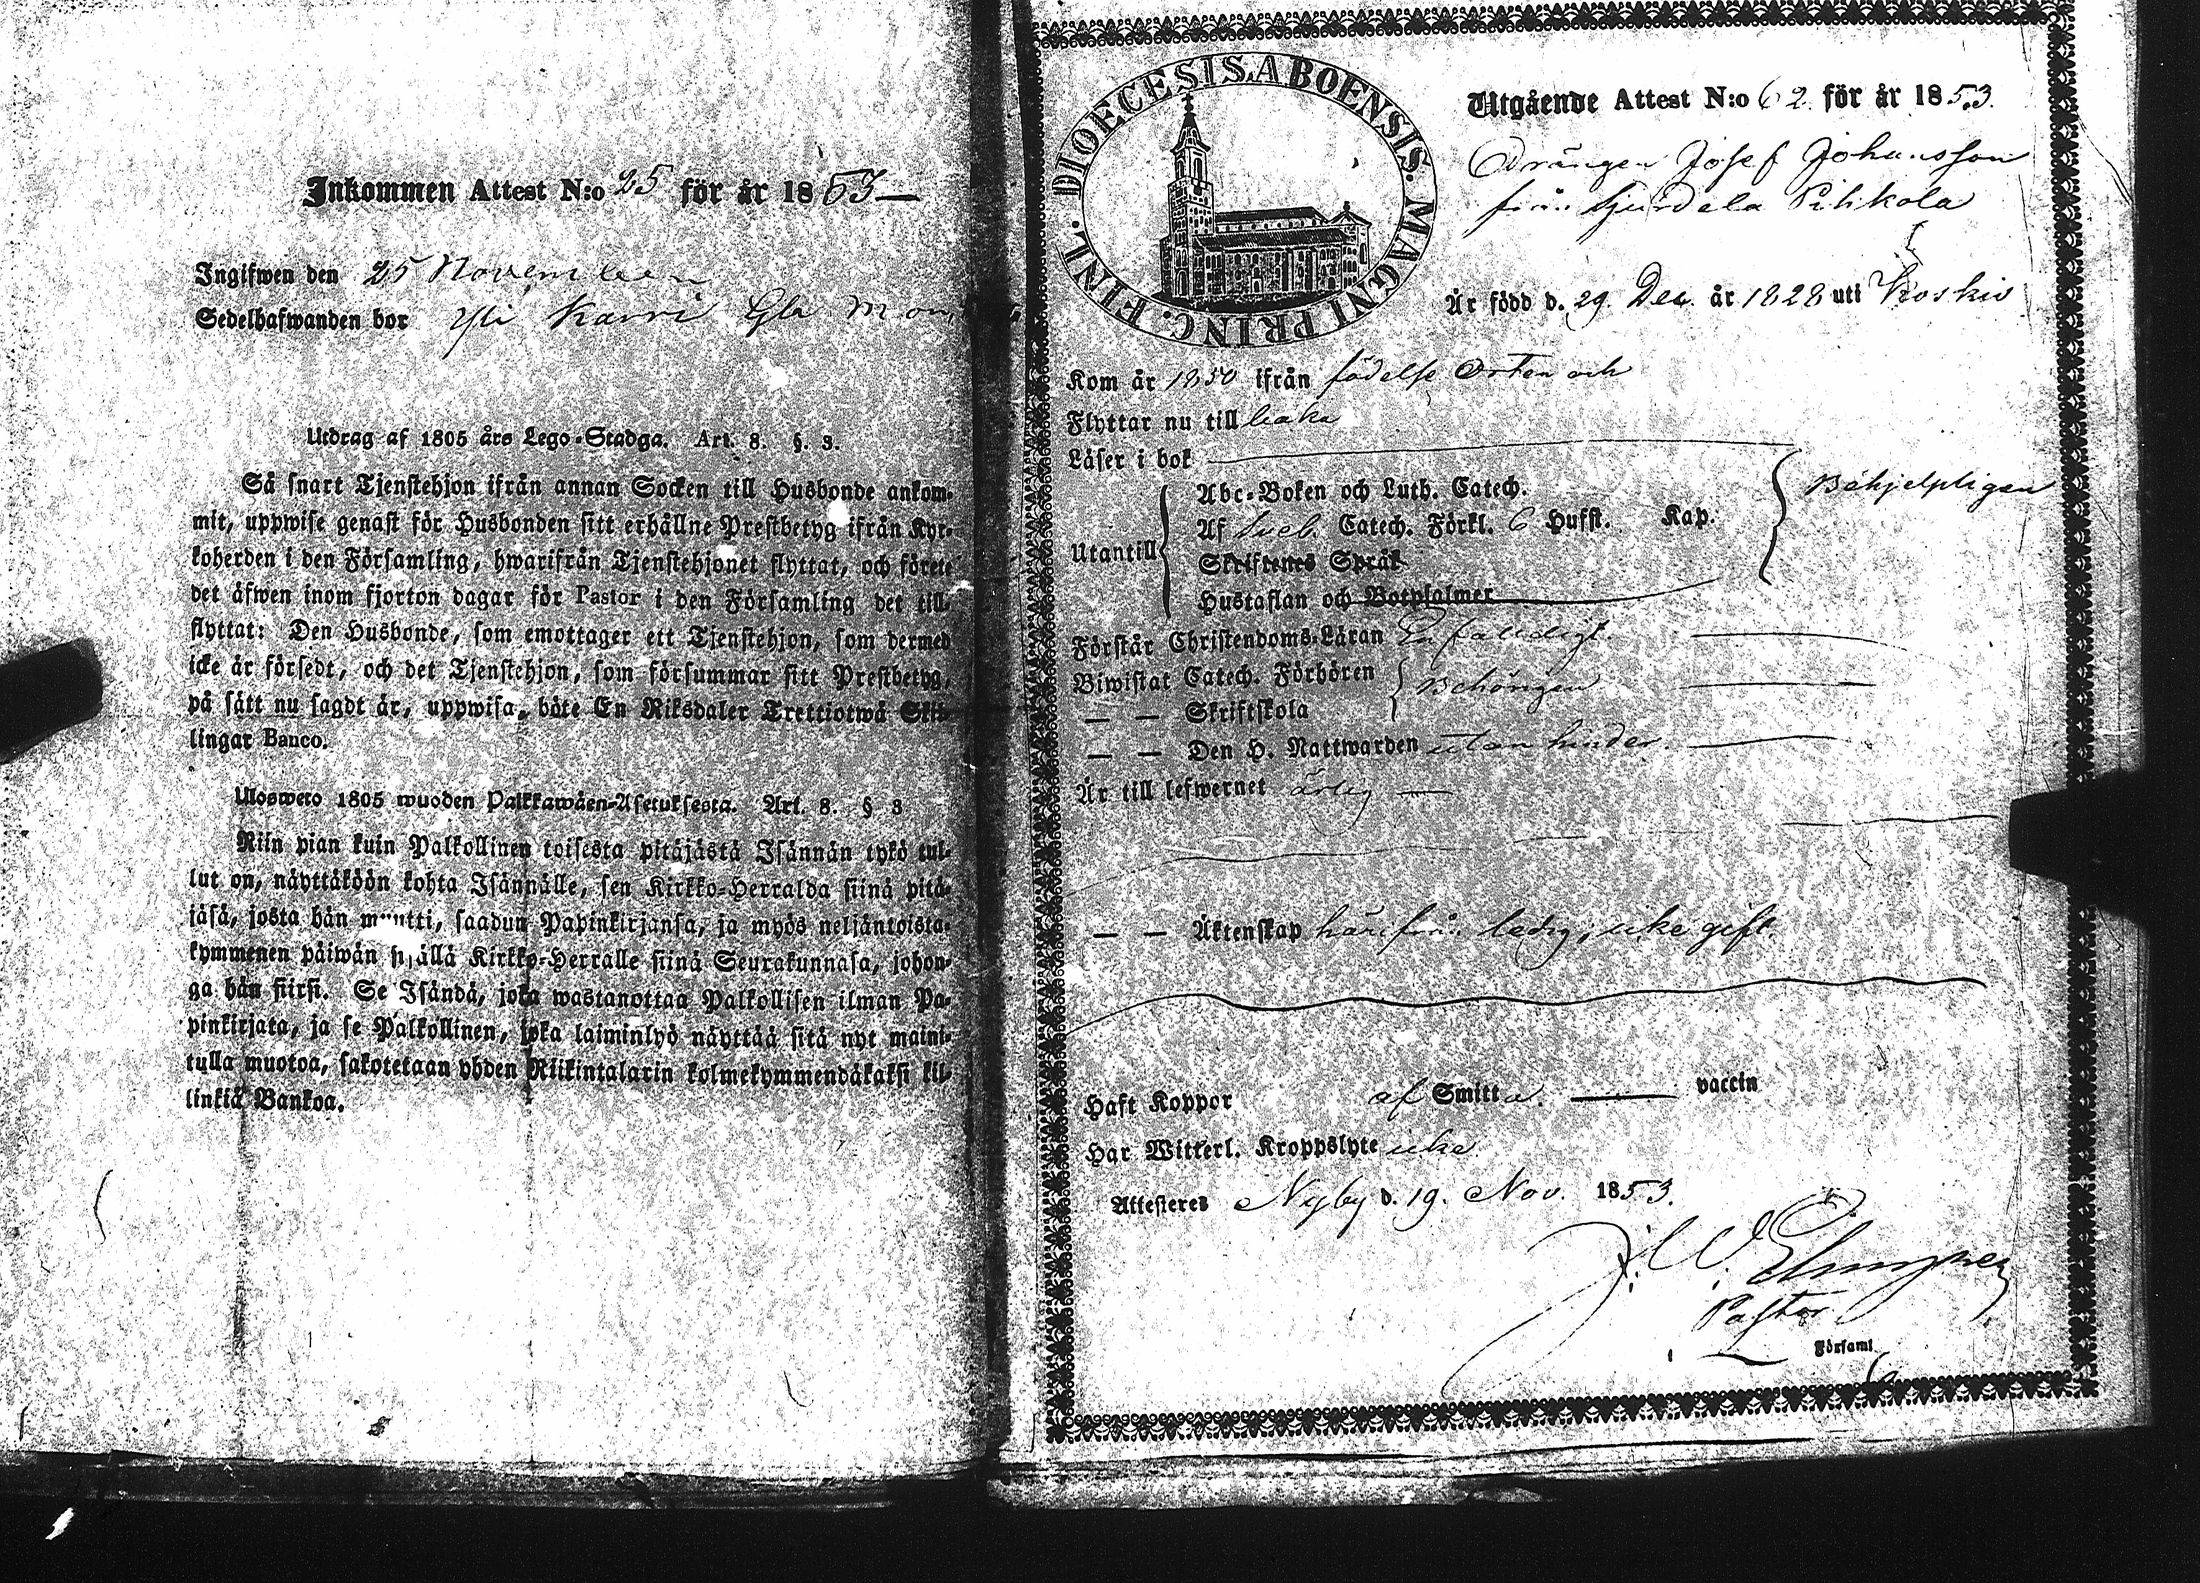 Inkommen Attest N:o 25 för år 1853
Ingifwen den 25 November
Sedelhafwanden bor Yli Karri
Utdrag af 1805 års Lego-Stadga. Art. 8. §. 3.
Så snart Tjenstehjon ifrån annan Socken till Husbonde ankom-
mit, uppwise genast för Husbonden sitt erhållne Prestbetyg ifrån Kyr-
koherden i den Församling, hwarifrån Tjenstehjonet flyttat, och förete
det äfwen inom fjorton dagar för Pastor i den Församling det till-
flyttat: Den Husbonde, som emottager ett Tjenstehjon, som dermed
icke är försedt, och det Tjenstehjon, som försummar sitt Prestbetyg,
på sätt nu sagdt är, uppwisa, böte En Riksdaler Trettiotwå Skil-
lingar Banco.
Ulosweto 1805 wuoden Palkkawäen-Asetuksesta. Art. 8. § 3
Niin pian kuin Palkollinen toisesta pitäjästä Isännän tykö tul-
lut on, näyttäköön kohta Isännälle, sen Kirkko-Herralda siinä pitä-
jäsä, josta hän muutti, saadun Papinkirjansa, ja myös neljäntoista-
kymmenen päiwän sisällä Kirkko-Herralle siinä Seurakunnasa, johon-
ga hän siirsi. Se Isändä, joka wastanottaa Palkollisen ilman Pa-
pinkirjata, ja se Palkollinen, joka laiminlyö näyttää sitä nyt maini-
tulla muotoa, sakotetaan yhden Riikintalarin kolmekymmendäkaksi kil-
linkiä Bankoa.
DIOECESIS ABOENSIS. MAGNI PRINC. FINL.
Utgående Attest N:o 62 för år 1853.
Drängen Josef Johansson
från Pilikola
Är född d. 29 Dec. år 1828 uti Koskis
Kom år 1850 ifrån födelse Orten och
Flyttar nu till baka
Läser i bok
Abc-Boken och Luth. Catech.
Behjelpligen
Utantill
Af Sveb. Catech. Förkl. 6 Hufst. Kap.
Skriftenes Språk
Hustaflan och Botpsalmer
Förstår Christendoms-Läran Enfaldigt.
Biwistat Catech. Förhören
Behörigen
— — Skriftskola
— — Den H. Nattwarden utan hinder.
Är till lefwernet ärlig
— — Äktenskap härifrån ledig; icke gift.
Haft Koppor af Smitta. vaccin
Har Witterl. Kroppslyte icke
Attesteras Nyby d. 19. Nov. 1853.
Pastor
Församl